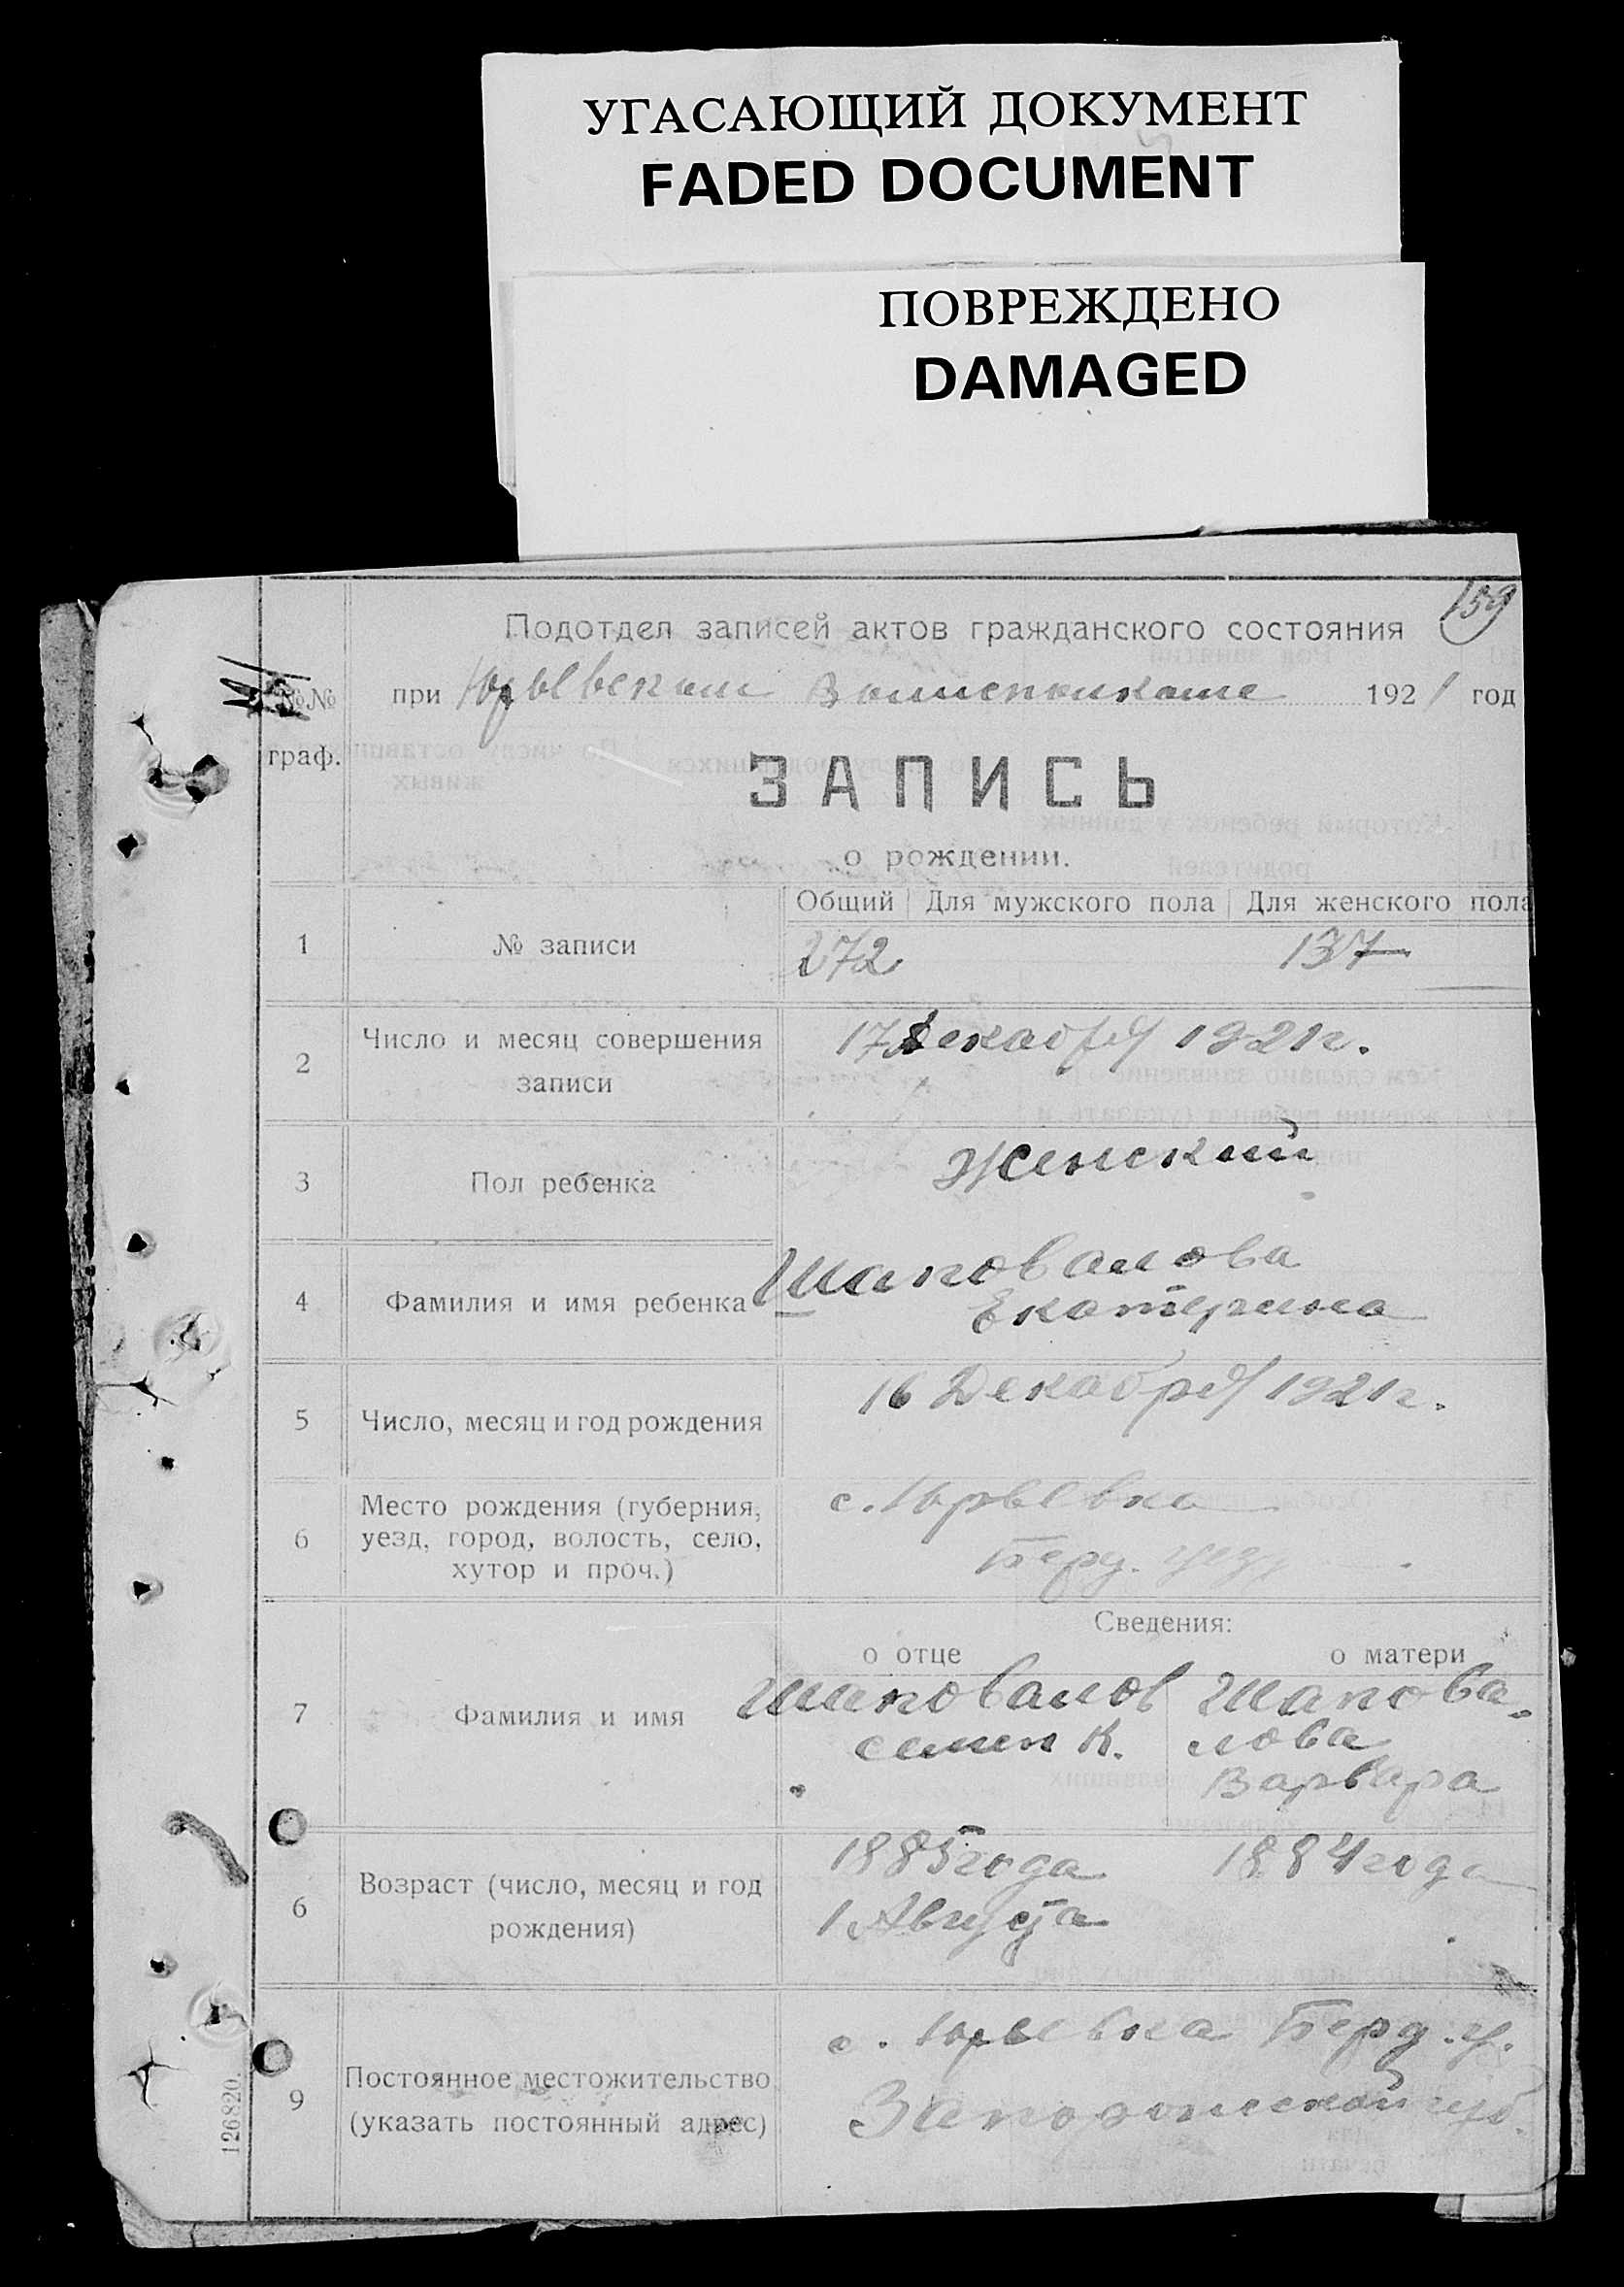 УГАСАЮЩИЙ ДОКУМЕНТ
FADED DOCUMENT
ПОВРЕЖДЕНО
DAMAGED
159
Подотдел записей актов гражданского состояния
№№ при Юрьевском 1921 год
граф.
ЗАПИСЬ
о рождении.
Общий Для мужского пола Для женского пола
1 № записи 272 137
2 Число и месяц совершения 17 Декабря 1921 г.
записи
3 Пол ребенка Женский
4 Фамилия и имя ребенка Шаповалова
Екатерина
5 Число, месяц и год рождения 16 Декабря 1921 г.
Место рождения (губерния, с. Юрьевка
6 уезд, город, волость, село, Берд. уезд
хутор и проч.)
Сведения:
о отце о матери
7 Фамилия и имя Шаповалов Шапова-
семен К. лова
Варвара
1885 года 1884 года
6 Возраст (число, месяц и год
рождения) 1 Августа
с. Юрьевка Берд. у.
9 Постоянное местожительство
(указать постоянный адрес) Запорожской губ.
126820.